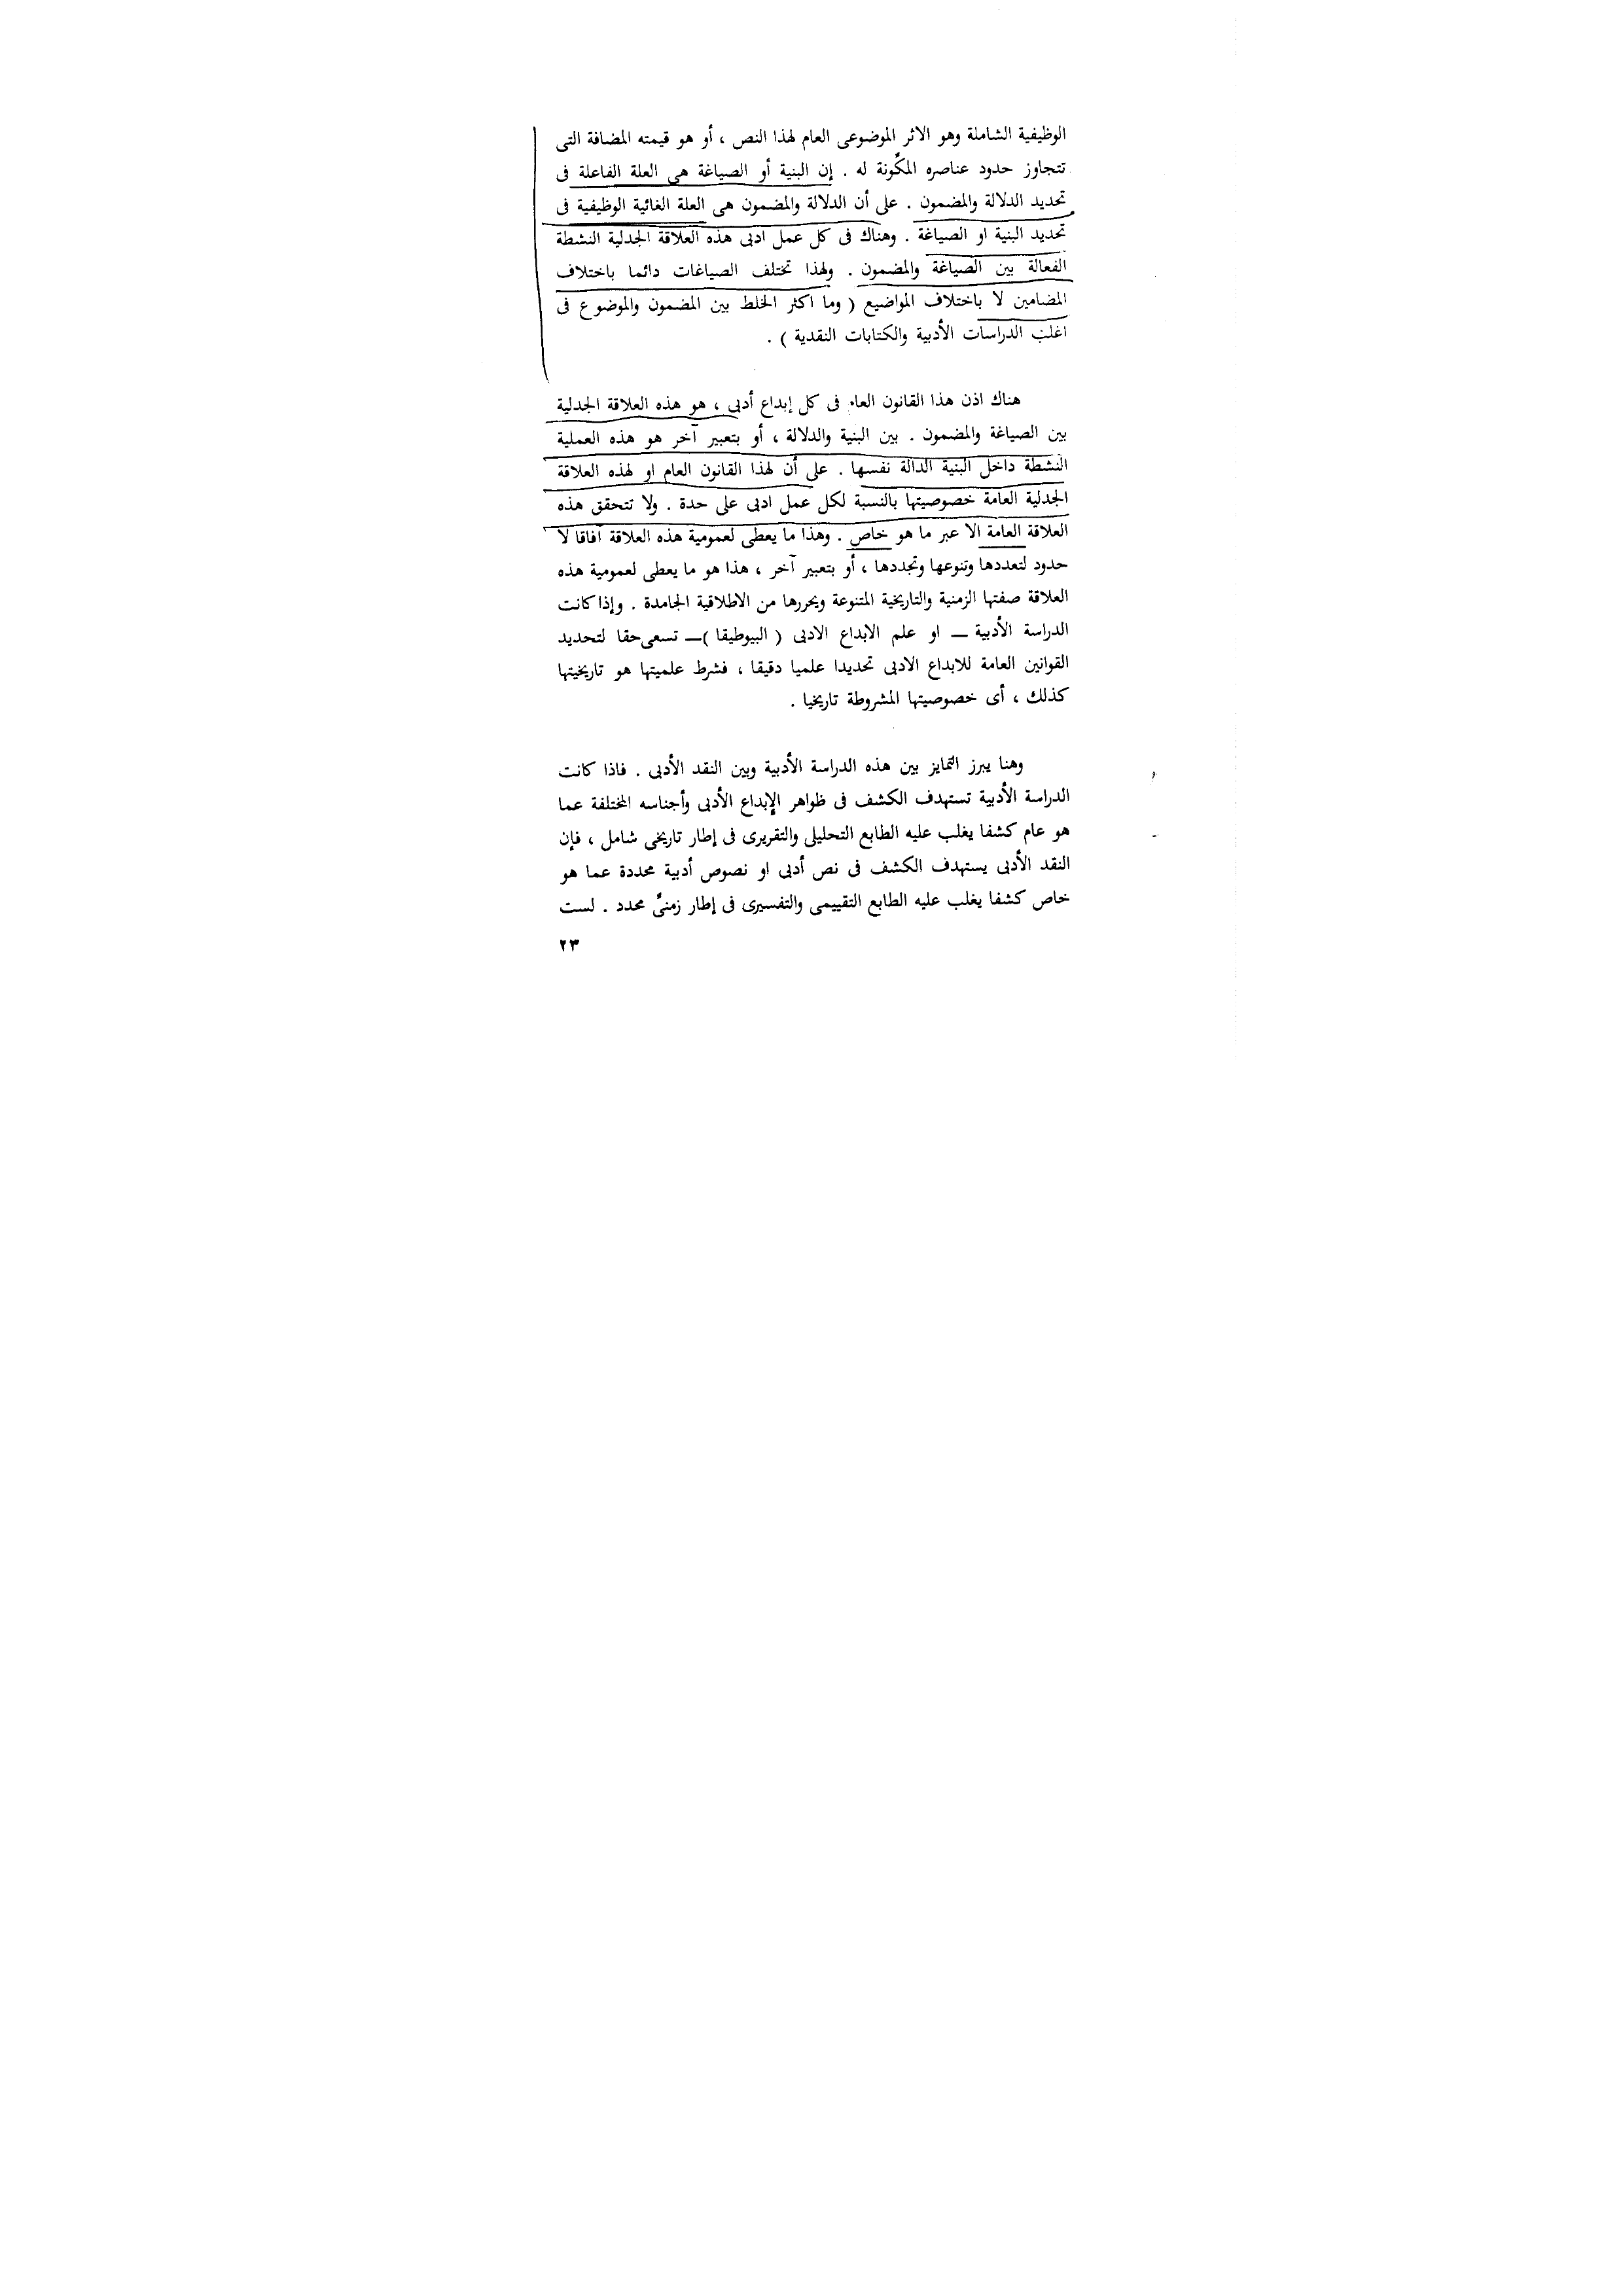 الوظيفية الشاملة وهو الاثر الموضوعى العام لهذا النص ، أو هو قيمته المضافة التى
تتجاوز حدود عناصره المكِّونة له . إن البنية أو الصياغة هى العلة الفاعلة فى
تحديد الدلالة والمضمون . على أن الدلالة والمضمون هى العلة الغائية الوظيفية فى
تحديد البنية او الصياغة . وهناك فى كل عمل ادبى هذه العلاقة الجدلية النشطة
الفعالة بين الصياغة والمضمون . ولهذا تختلف الصياغات دائما باختلاف
المضامين لا باختلاف المواضيع ( وما اكثر الخلط بين المضمون والموضوع فى
اغلب الدراسات الأدبية والكتابات النقدية ) .
هناك اذن هذا القانون العام فى كل إبداع أدبى ، هو هذه العلاقة الجدلية
بين الصياغة والمضمون . بين البنية والدلالة ، أو بتعبير آخر هو هذه العملية
النشطة داخل البنية الدالة نفسها . على أن لهذا القانون العام او لهذه العلاقة
الجدلية العامة خصوصيتها بالنسبة لكل عمل ادبى على حدة . ولا تتحقق هذه
العلاقة العامة الا عبر ما هو خاص . وهذا ما يعطى لعمومية هذه العلاقة آفاقا لا
حدود لتعددها وتنوعها وتجددها ، أو بتعبير آخر ، هذا هو ما يعطى لعمومية هذه
العلاقة صفتها الزمنية والتاريخية المتنوعة ويحررها من الاطلاقية الجامدة . وإذا كانت
الدراسة الأدبية — او علم الابداع الادبى ( البيوطيقا ) — تسعى حقا لتحديد
القوانين العامة للابداع الادبى تحديدا علميا دقيقا ، فشرط علميتها هو تاريخيتها
كذلك ، أى خصوصيتها المشروطة تاريخيا .
وهنا يبرز التمايز بين هذه الدراسة الأدبية وبين النقد الأدبى . فاذا كانت
الدراسة الأدبية تستهدف الكشف فى ظواهر الإبداع الأدبى وأجناسه المختلفة عما
هو عام كشفا يغلب عليه الطابع التحليلى والتقريرى فى إطار تاريخى شامل ، فإن
النقد الأدبى يستهدف الكشف فى نص أدبى او نصوص أدبية محددة عما هو
خاص كشفا يغلب عليه الطابع التقييمى والتفسيرى فى إطار زمنىِّ محدد . لست
٢٣